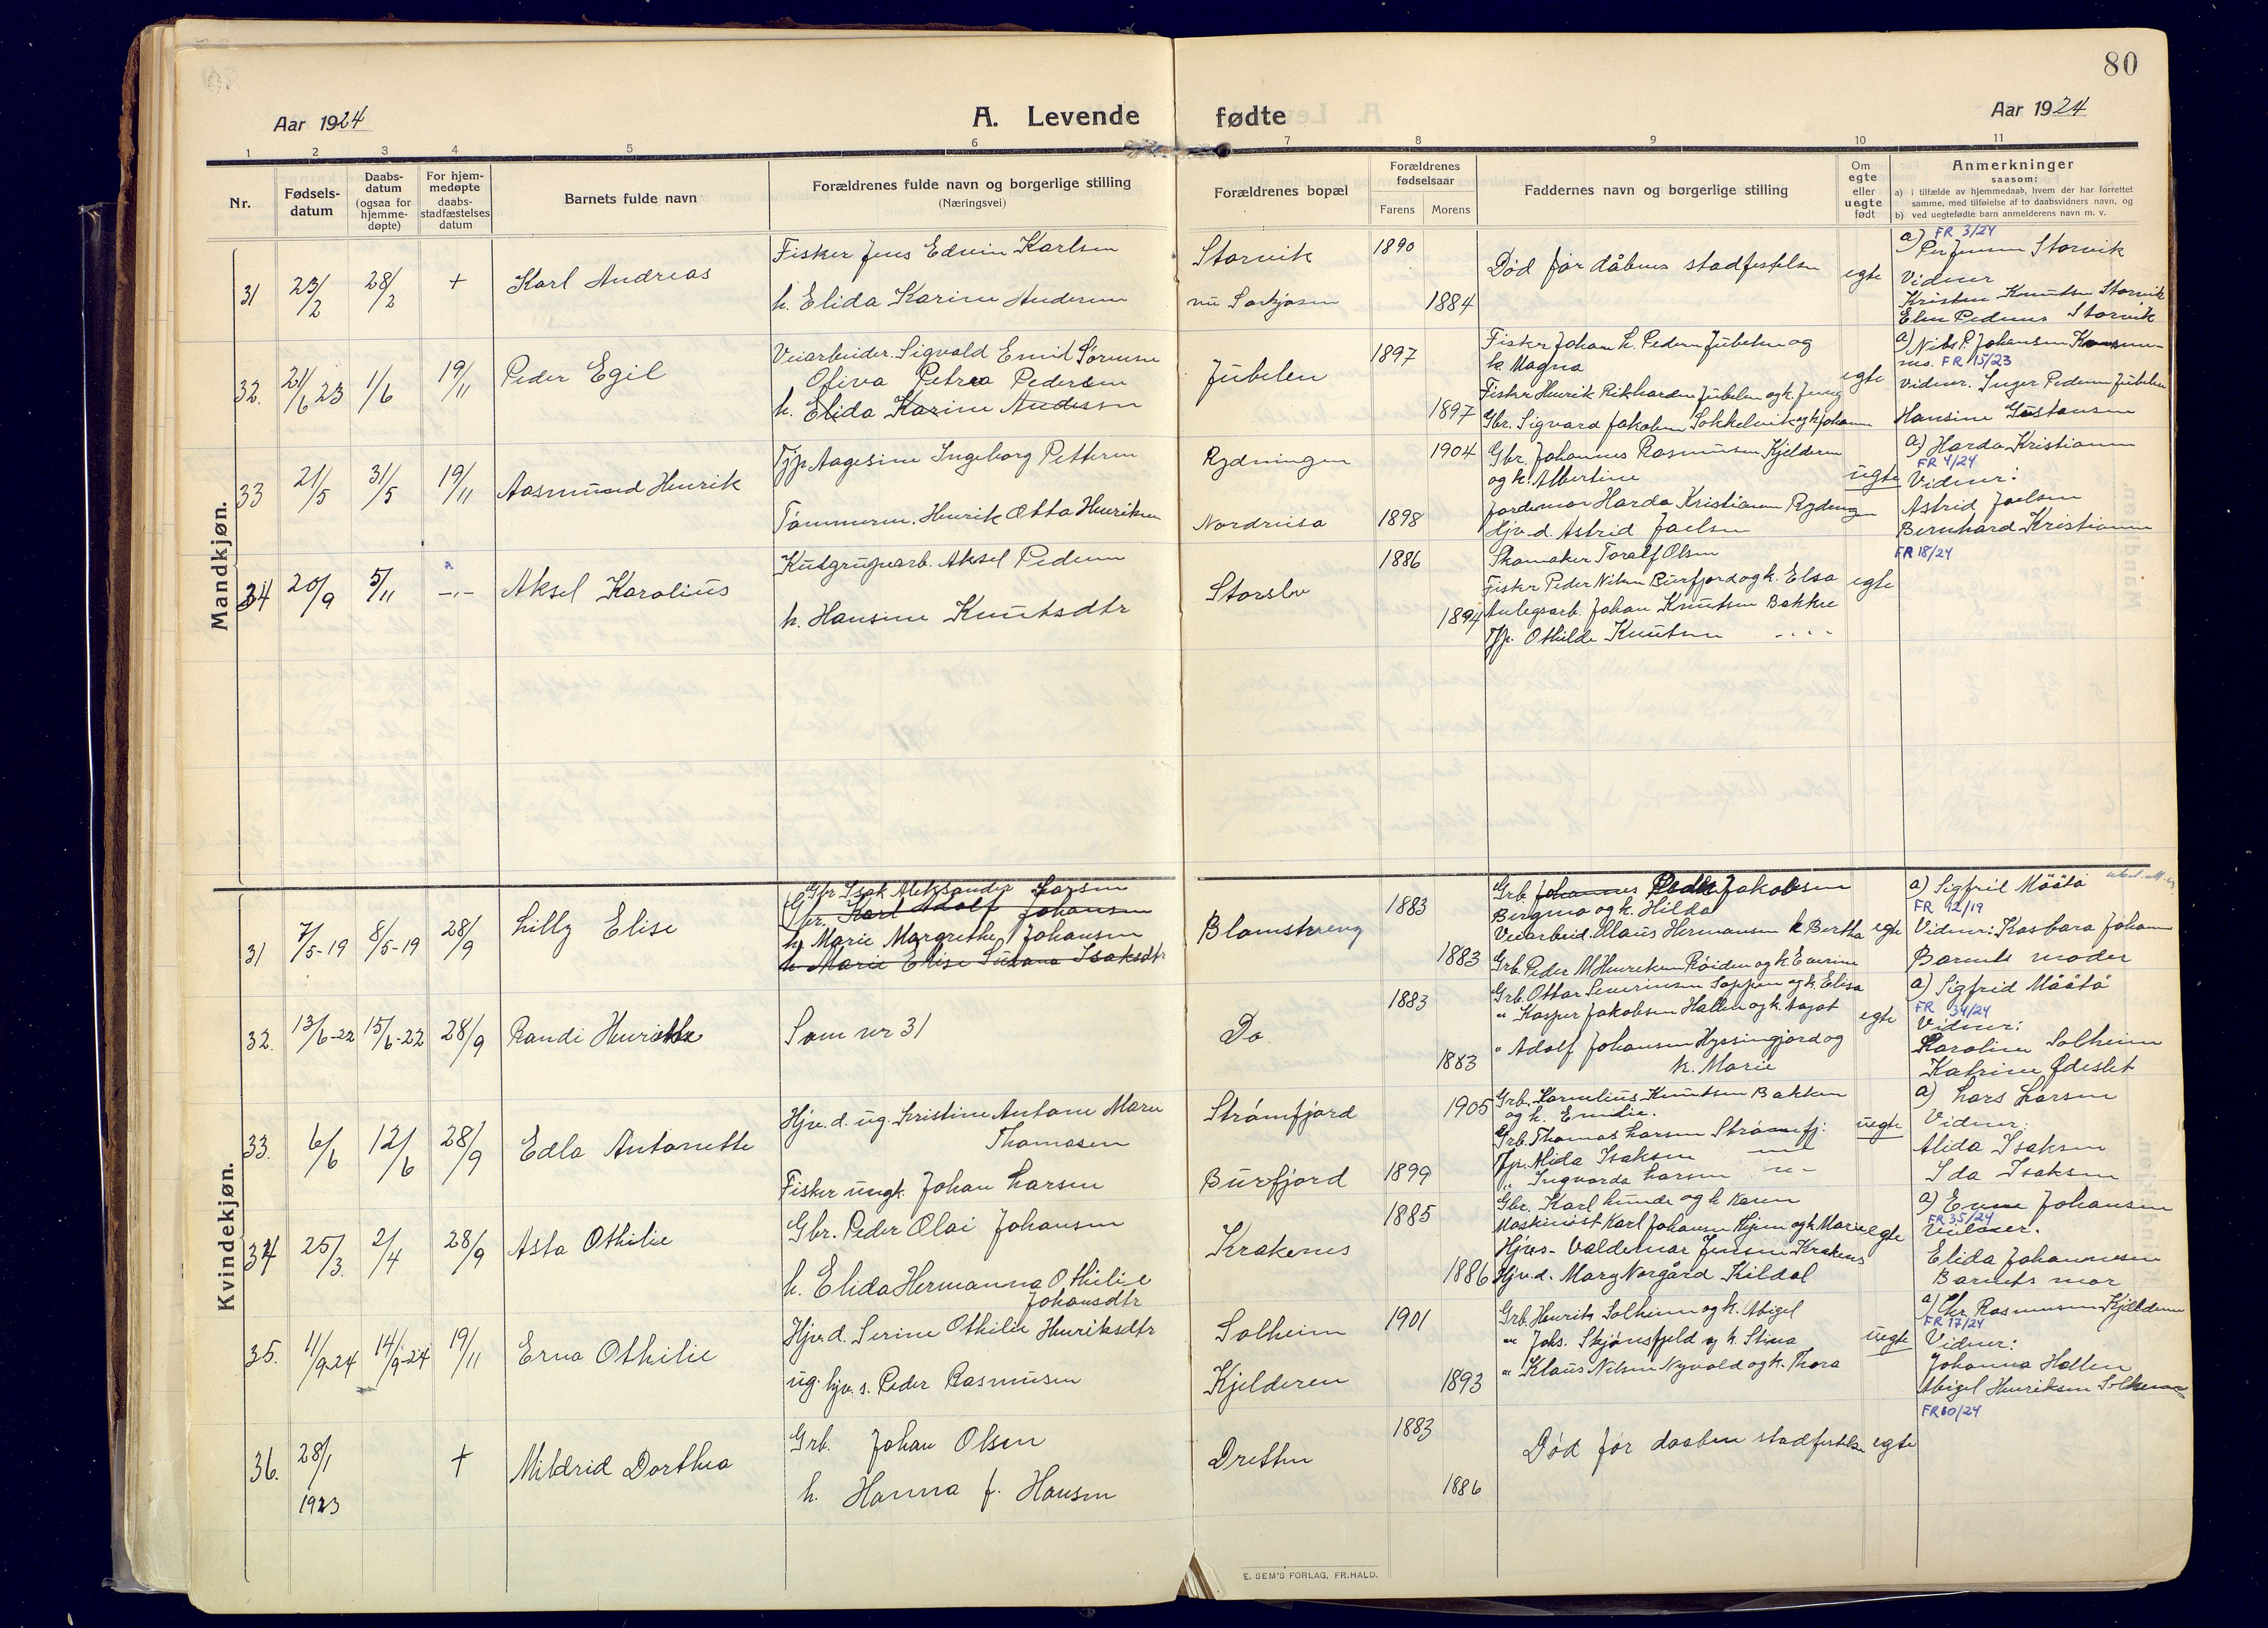 80
Aar 1924
A. Levende fødte
Aar 1924
1 2 3 4 5 6 7 8 9 10 11
Nr.
Fødsels-
datum
Daabs-
datum
(ogsaa for
hjemme-
døpte)
For hjem-
medøpte
daabs-
stadfæstelses
datum
Barnets fulde navn
Forældrenes fulde navn og borgerlige stilling
(Næringsvei)
Forældrenes bopæl
Forældrenes
fødselsaar
Farens Morens
Faddernes navn og borgerlige stilling
Om
egte
eller
uegte
født
Anmerkninger
saasom:
a) i tilfælde av hjemmedaab, hvem der har forrettet
samme, med tilføielse af to daabsvidners navn, og
b) ved uegtefødte barn anmelderens navn m. v.
Mandkjøn.
31 23/2 28/2 + Karl Andreas
Fisker Jens Edvin Karlsen
h. Elida Karine Andersen
Storvik
nu Sørkjosen
1890
1884
Død før dåbens stadfestelse
egte
a) FR 3/24
Per Jensen Storvik
Vidner
Kristen Knutsen Storvik
Elen Pedersen Storvik
32. 21/6 23 1/6 19/11 Peder Egil
Veiarbeider Sigvald Emil Sørensen
Oliva Petrea Pedersen
h. Elida Karine Andersen
Jubelen
1897
1897
Fisker Johan L. Pedersen Jubelen og
h. Magna
Fisker Henrik Rikhardsen Jubelen og h. Jenny
Gbr. Sigvard Jakobsen Sokkelvik og h. Johanne
egte
a) Nils P. Johansen
FR 15/23
Vidner. Inger Pedersen Jubelen
Hansine Gustavsen
33 21/5 31/5 19/11 Aasmund Henrik
Tjp. Aagesine Ingeborg Pettersen
Tømmerm. Henrik Otto Henriksen
Rydningen
Nordreisa
1904
1898
Gbr. Johannes Rasmussen Kjelderen
og h. Albertine
Jordemor Harda Kristiansen Rydningen
Hjv. d. Astrid Joelsen
uegte
a) Harda Kristiansen
FR 4/24
Vidner:
Astrid Joelsen
Bernhard Kristiansen
34 20/9 5/11 -"- Aksel Karolius
Kisgrugearb. Aksel Pedersen
h. Hansine Knutsdtr
Storslv
1886
1894
Skomaker Toralf Olsen
Fisker Peder Nilsen Burfjord og h. Elsa
Anlegsarb. Johan Knutsen Bakke
Tjp. Othilde Knutsen
egte
FR 18/24
Kvindekjøn.
31 7/5-19 8/5-19 28/9 Lilly Elise
Gbr. Isak Aleksander Larsen
Gbr. Karl Adolf Johansen
h. Marie Margrethe Johansen
h. Marie Elise Susana Isaksdtr
Blomstereng
1883
1883
Grb. Johannes Peder Jakobsen
Bergmo og h. Hilda
Veiarbeid. Klaus Hermansen h. Bertha
Grb. Peder M Henriksen Røiden og h. Everine
egte
a) Sigfrid Määtä
FR 12/19
Vidner: Kasbara Johansen
Barnets moder
32. 13/6-22 15/6-22 28/9 Randi Henriette
Som nr 31
Do
1883
1883
Grb. Ottar Severinsen Soppen og h. Elisa
" Kasper Jakobsen Hallen og h. Aagot
" Adolf Johansen Hyssingjord og
h. Marie
egte
a) Sigfrid Määtä
FR 34/24
Vidner:
Karoline Solheim
Katrine Ødeslet
33. 6/6 12/6 28/9 Edla Antonette
Hjv. d. ug. Kristine Antone Marie
Thomasen
Fisker ungk. Johan Larsen
Strømfjord
Burfjord
1905
1899
Grb. Kornelius Knutsen Bakken
og h. Emilie.
Grb. Thomas Larsen Strømfj:
Tjp. Alida Isaksen
" Ingvarda Larsen
uegte
a) Lars Larsen
Vidner:
Alida Isaksen
Ida Isaksen
34 25/3. 2/4 28/9 Asta Othilie
Gbr. Peder Olai Johansen
h. Elida Hermanna Othilie
Johansdtr
Krakenes
1885
1886
Gbr. Karl Lunde og h. Karen
Maskinist Karl Johansen Hjem og h. Marie
Hjvs- Valdemar Jensen Krakenes
Hjv. d. Mary Norgård Kildal
egte
a) Enne Johansen
FR 35/24
Vidner.
Elida Johannesen
Barnets mor
35. 11/9-24 14/9-24 19/11 Erna Othilie
Hjv. d. Serine Othilie Henriksdtr
ug. hjv. s. Peder Rasmusen
Solheim
Kjelderen
1901
1893
Grb. Henrik Solheim og h. Abigel
" Johs. Skjønsfjeld og h. Stina
" Klaus Nilsen Nyvold og h. Thora
uegte
a) Chr. Rasmussen Kjelderen
FR 17/24
Vidner:
Johanna Hallen
Abigel Henriksen Solheim
36. 28/1 1923 + Mildrid Dorthea
Grb. Johan Olsen
h. Hanna f. Hansen
Dretten
1883
1886
Død før daaben stadfestelse egte
FR 60/24
E. SEM'S FORLAG, FR.HALD.